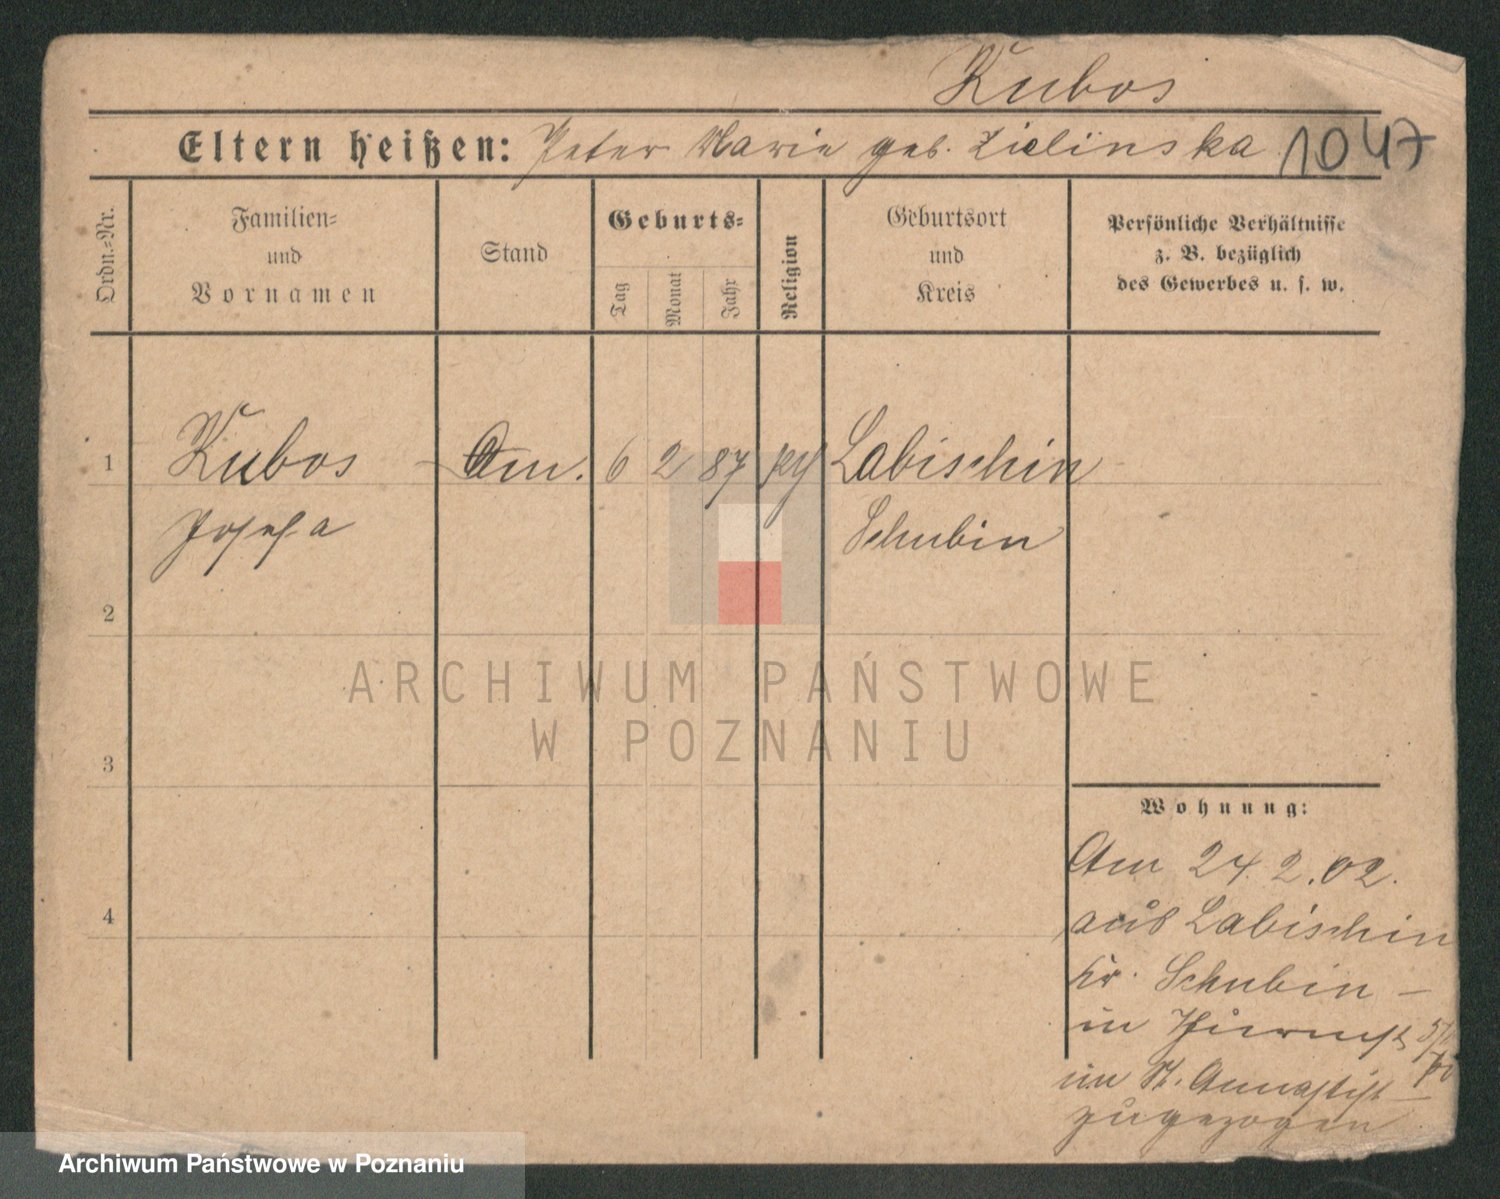 Kubos
Eltern heißen: Peter Marie geb. Zielinska 1047
Ordn.-Nr.
Familien-
und
Vornamen
Stand
Geburts-
Tag
Monat
Jahr
Religion
Geburtsort
und
Kreis
Persönliche Verhältnisse
z. B. bezüglich
des Gewerbes u. s. w.
1 Kubos 6 2 87 Labischin
Josefa Schubin
2
ARCHIWUM PAŃSTWOWE
W POZNANIU
3
Wohnung:
Am 24.2.02.
aus Labischin
4
Kr. Schubin –
in
im St. Annastift
zugezogen
Archiwum Państwowe w Poznaniu